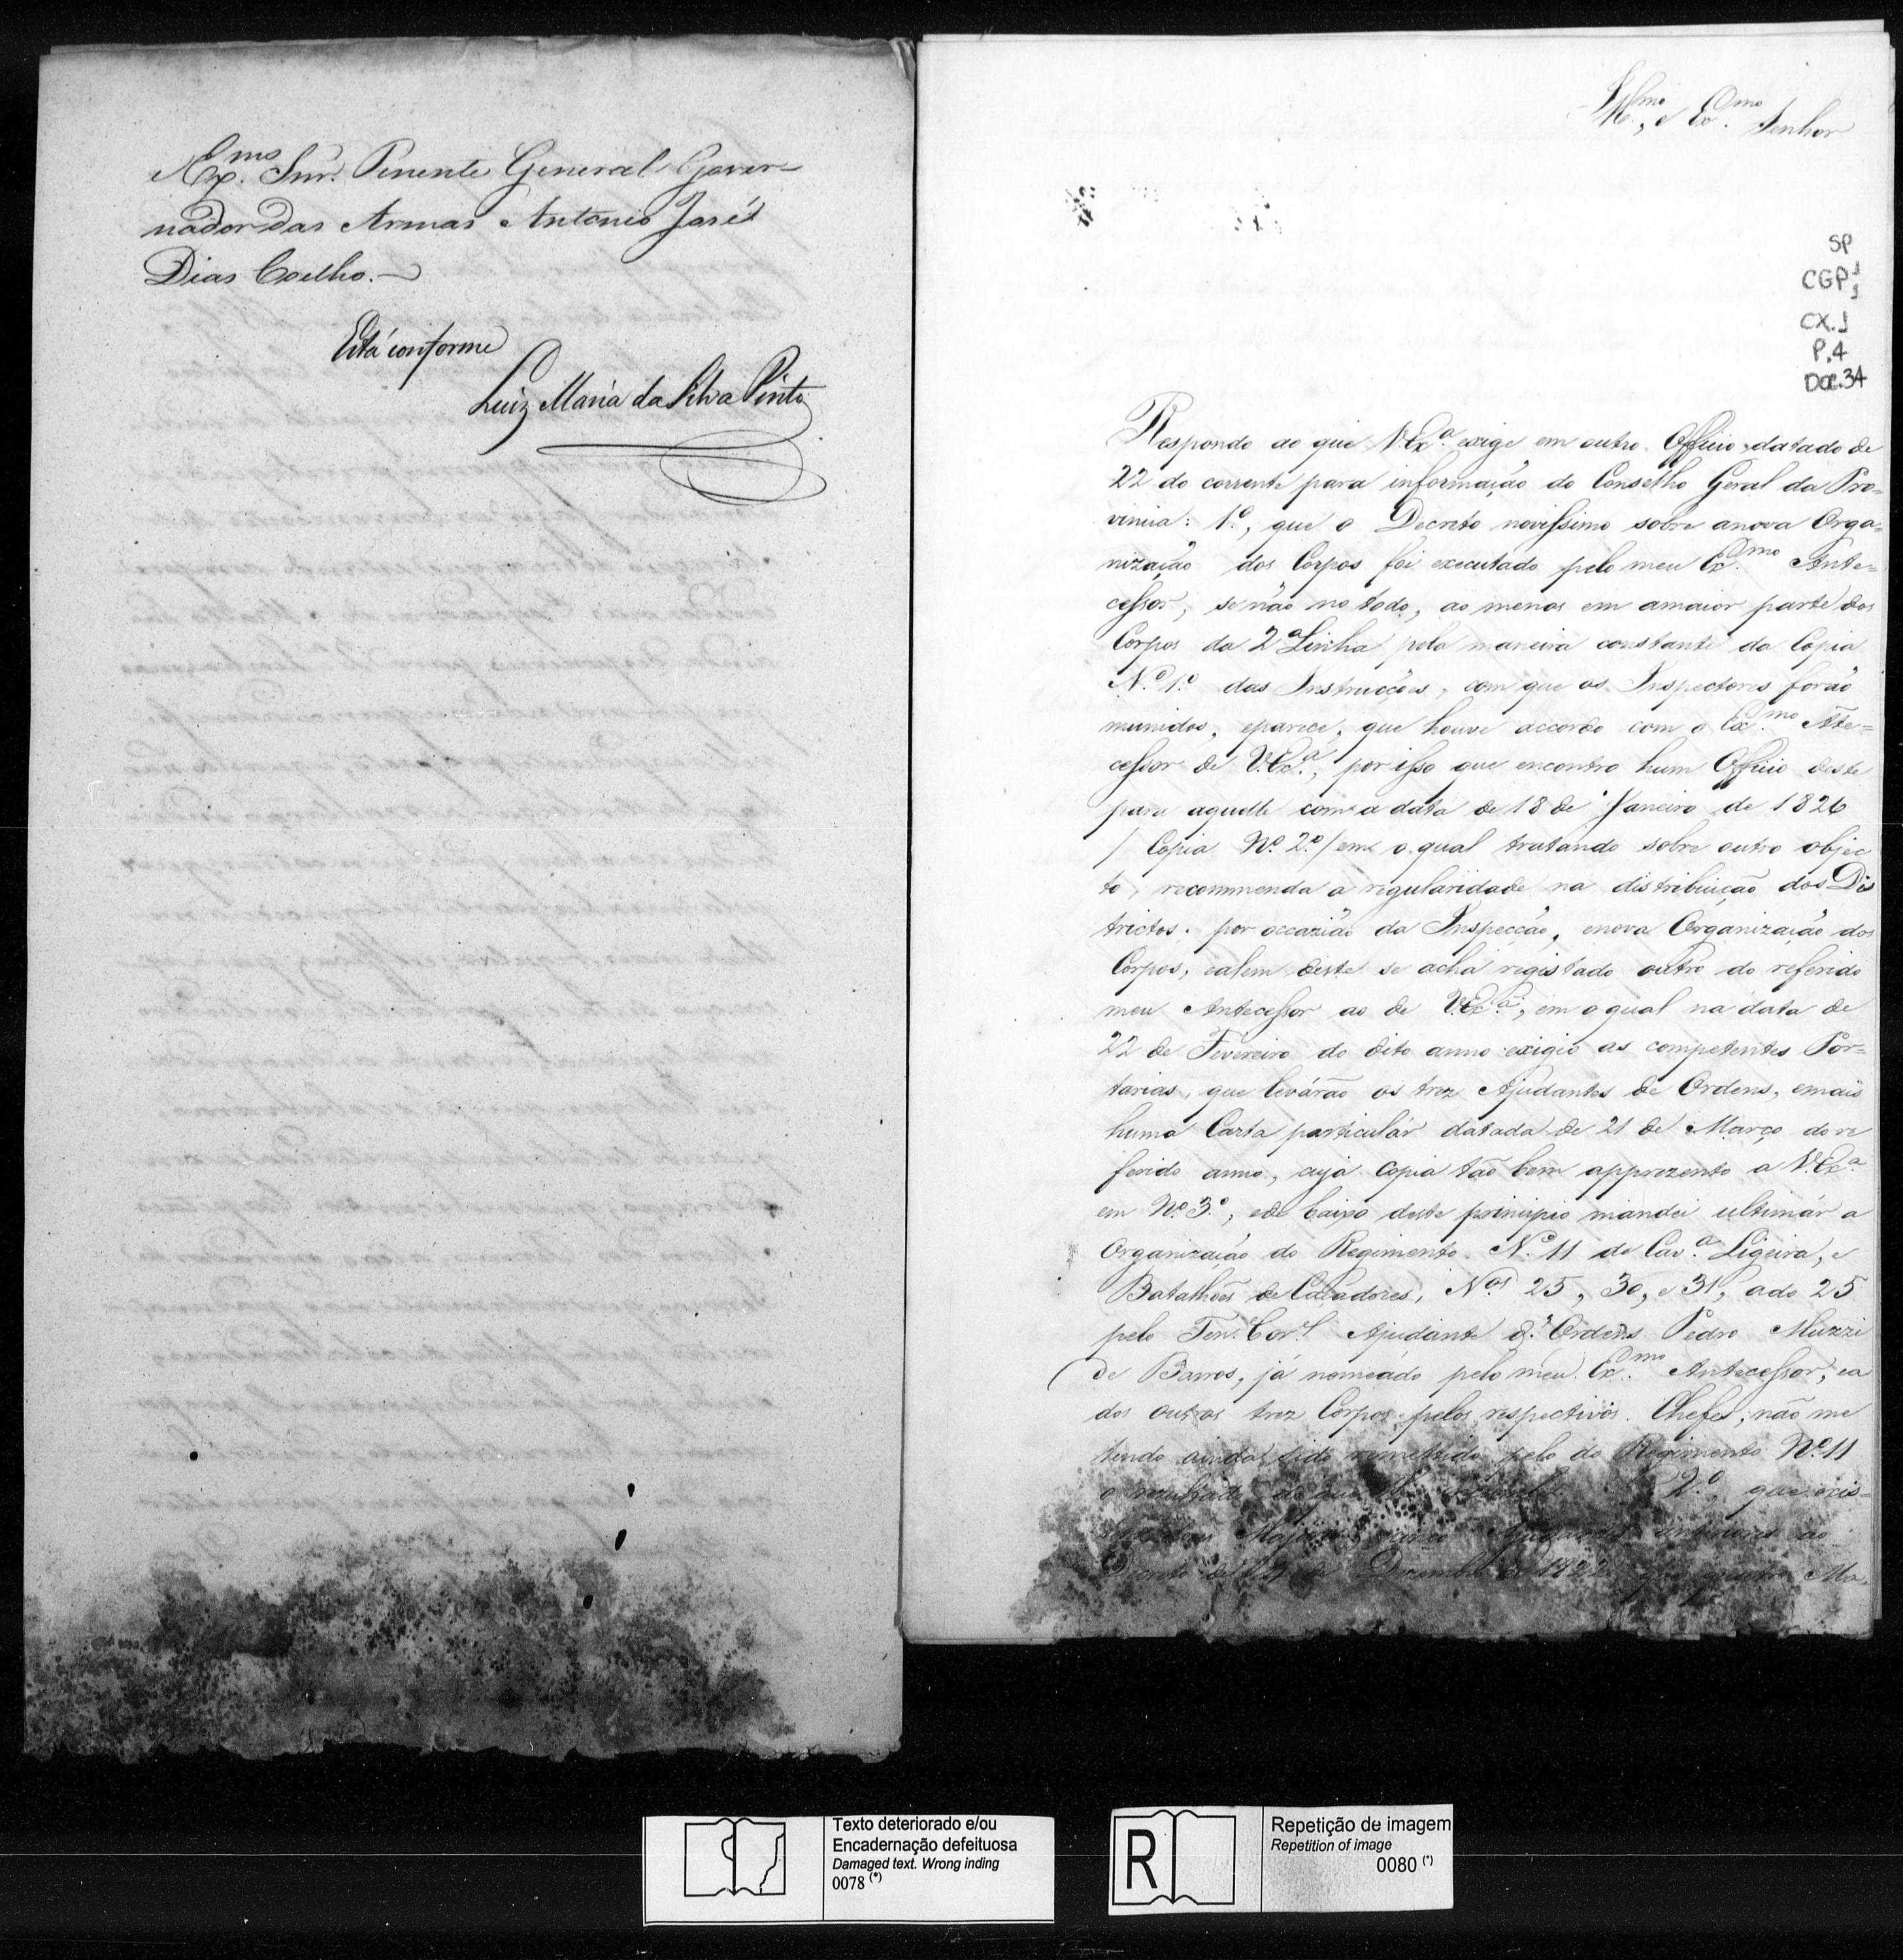 Ex.mo Snr. Tenente General Gover-
nador das Armas Antonio José
Dias Coelho.—
Está conforme
Luiz Maria da Silva Pinto
Ill.mo, e Ex.mo Senhor
SP
CGP1
1
CX.1
P.4
Doc.34
Respondo ao que V.Ex.a exige em outro Officio datado de
22 do corrente para informação do Conselho Geral da Pro=
vincia: 1.º, que o Decreto novissimo sobre anova Orga=
nização dos Corpos foi executado pelo meu Ex.mo Ante=
cessor, se não no todo, ao menos em amaior parte dos
Corpos da 2.a Linha pela maneira constante da Copia
N.º 1.º das Instrucções, com que os Inspectores forão
munidos, eparece, que houve accordo com o Ex.mo Ate=
cessor de V.Ex.a, por isso que encontro hum Officio deste
para aquelle com a data de 18 de Janeiro de 1826
/ Copia N.º 2.º / em o qual tratando sobre outro objec
to, recommenda a regularidade na distribuição dos Dis
trictos. por occazião da Inspecção, enova Organização dos
Corpos, ealem deste se acha registado outro do referido
meu Antecessor ao de V.Ex.a, em o qual na data de
22 de Fevereiro do dito anno exigio as competentes Por=
tarias, que levárão os trez Ajudantes de Ordens, emais
huma Carta particular datada de 21 de Março do re
ferido anno, cuja copia tão bem apprezento a V.Ex.a
em N.º 3.º, ede baixo deste principio mandei ultimár a
Organização do Regimento N.º 11 de Cav.a Ligeira, e
Batalhões de Caçadores, N.os 25, 30, e 31, ado 25
pelo Ten. Cor.l Ajudante d'Ordens Pedro Muzzi
de Barros, já nomeado pelo meu Ex.mo Antecessor, ea
dos outros trez Corpos pelos respectivos Chefes, não me
tendo ainda sido remettido pelo do Regimento N.º 11
o rezultado 2.º, que exis-
Majores Ajudantes anteriores ao
Decreto de Dezembro de 1822 quatro Ma.
Texto deteriorado e/ou
Encadernação defeituosa
Damaged text. Wrong inding
0078 (*)
R
Repetição de imagem
Repetition of image
0080 (*)